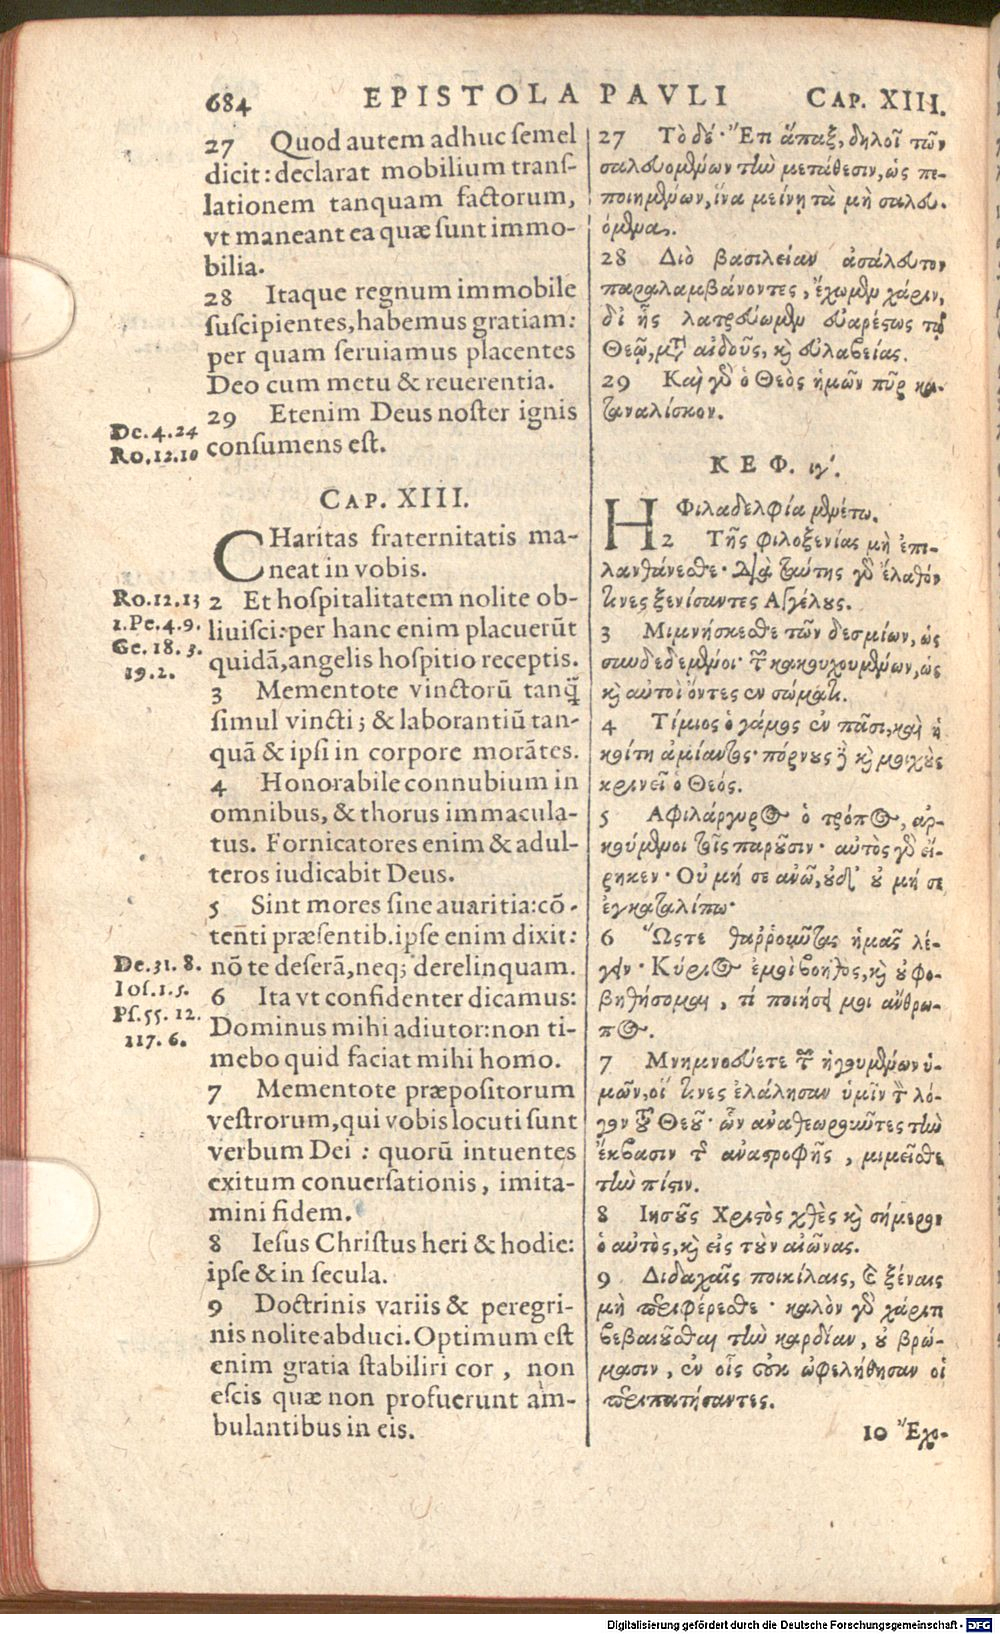 684 EPISTOLA PAVLI CAP. XIII.
27 Quod autem adhuc ſemel
dicit: declarat mobilium tranſ-
lationem tanquam factorum,
vt maneant ea quæ ſunt immo-
bilia.
28 Itaque regnum immobile
ſuſcipientes, habemus gratiam:
per quam ſeruiamus placentes
Deo cum metu & reuerentia.
29 Etenim Deus noſter ignis
conſumens eſt.
De. 4. 24
Ro. 12. 10
CAP. XIII.
CHaritas fraternitatis ma-
neat in vobis.
2 Et hoſpitalitatem nolite ob-
liuiſci: per hanc enim placuerūt
quidã, angelis hoſpitio receptis.
Ro. 12. 13
1. Pe. 4. 9.
Ge. 18. 3.
19. 2.
3 Mementote vinctorū tanq̃
ſimul vincti; & laborantiū tan-
quã & ipſi in corpore morãtes.
4 Honorabile connubium in
omnibus, & thorus immacula-
tus. Fornicatores enim & adul-
teros iudicabit Deus.
5 Sint mores ſine auaritia: cõ-
tenti præſentib. ipſe enim dixit:
nõ te deſerã, neq; derelinquam.
De. 31. 8.
Ioſ. 1. 5.
6 Ita vt confidenter dicamus:
Dominus mihi adiutor: non ti-
mebo quid faciat mihi homo.
Pſ. 55. 12.
117. 6.
7 Mementote præpoſitorum
veſtrorum, qui vobis locuti ſunt
verbum Dei: quorū intuentes
exitum conuerſationis, imita-
mini fidem.
8 Ieſus Chriſtus heri & hodie:
ipſe & in ſecula.
9 Doctrinis variis & peregri-
nis nolite abduci. Optimum eſt
enim gratia ſtabiliri cor, non
eſcis quæ non profuerunt am-
bulantibus in eis.
27 Τὸ δέ· Ἔτι ἅπαξ, δηλοῖ τῶν
σαλευομένων τὴν μετάθεσιν, ὡς πε-
ποιημένων, ἵνα μείνῃ τὰ μὴ σαλευ-
όμενα.
28 Διὸ βασιλείαν ἀσάλευτον
παραλαμβάνοντες, ἔχωμεν χάριν,
δι' ἧς λατρεύωμεν εὐαρέστως τῷ
Θεῷ, μετὰ αἰδοῦς, καὶ εὐλαβείας.
29 Καὶ γὰρ ὁ Θεὸς ἡμῶν πῦρ κα-
ταναλίσκον.
ΚΕΦ. ιγ'.
Η Φιλαδελφία μενέτω.
2 Τῆς φιλοξενίας μὴ ἐπι-
λανθάνεσθε· Διὰ ταύτης γὰρ ἔλαθόν
τινες ξενίσαντες Αγγέλους.
3 Μιμνήσκεσθε τῶν δεσμίων, ὡς
συνδεδεμένοι· τῶν κακουχουμένων, ὡς
καὶ αὐτοὶ ὄντες ἐν σώματι.
4 Τίμιος ὁ γάμος ἐν πᾶσι, καὶ ἡ
κοίτη ἀμίαντος· πόρνους δὲ καὶ μοιχοὺς
κρινεῖ ὁ Θεός.
5 Αφιλάργυρος ὁ τρόπος, ἀρ-
κούμενοι τοῖς παροῦσιν· αὐτὸς γὰρ εἴ-
ρηκεν· Οὐ μή σε ἀνῶ, οὐδ' οὐ μή σε
ἐγκαταλίπω·
6 Ὥστε θαῤῥοῦντας ἡμᾶς λέ-
γειν· Κύριος ἐμοὶ βοηθὸς, καὶ οὐ φο-
βηθήσομαι, τί ποιήσει μοι ἄνθρω-
πος.
7 Μνημονεύετε τῶν ἡγουμένων ὑ-
μῶν, οἵ τινες ἐλάλησαν ὑμῖν τὸν λό-
γον τοῦ Θεοῦ· ὧν ἀναθεωροῦντες τὴν
ἔκβασιν τῆς ἀναστροφῆς, μιμεῖσθε
τὴν πίστιν.
8 Ιησοῦς Χριστὸς χθὲς καὶ σήμερον
ὁ αὐτὸς, καὶ εἰς τοὺς αἰῶνας.
9 Διδαχαῖς ποικίλαις, καὶ ξέναις
μὴ περιφέρεσθε· καλὸν γὰρ χάριτι
βεβαιοῦσθαι τὴν καρδίαν, οὐ βρώ-
μασιν, ἐν οἷς οὐκ ὠφελήθησαν οἱ
περιπατήσαντες.
10 Ἔχο-
Digitalisierung gefördert durch die Deutsche Forschungsgemeinschaft - DFG